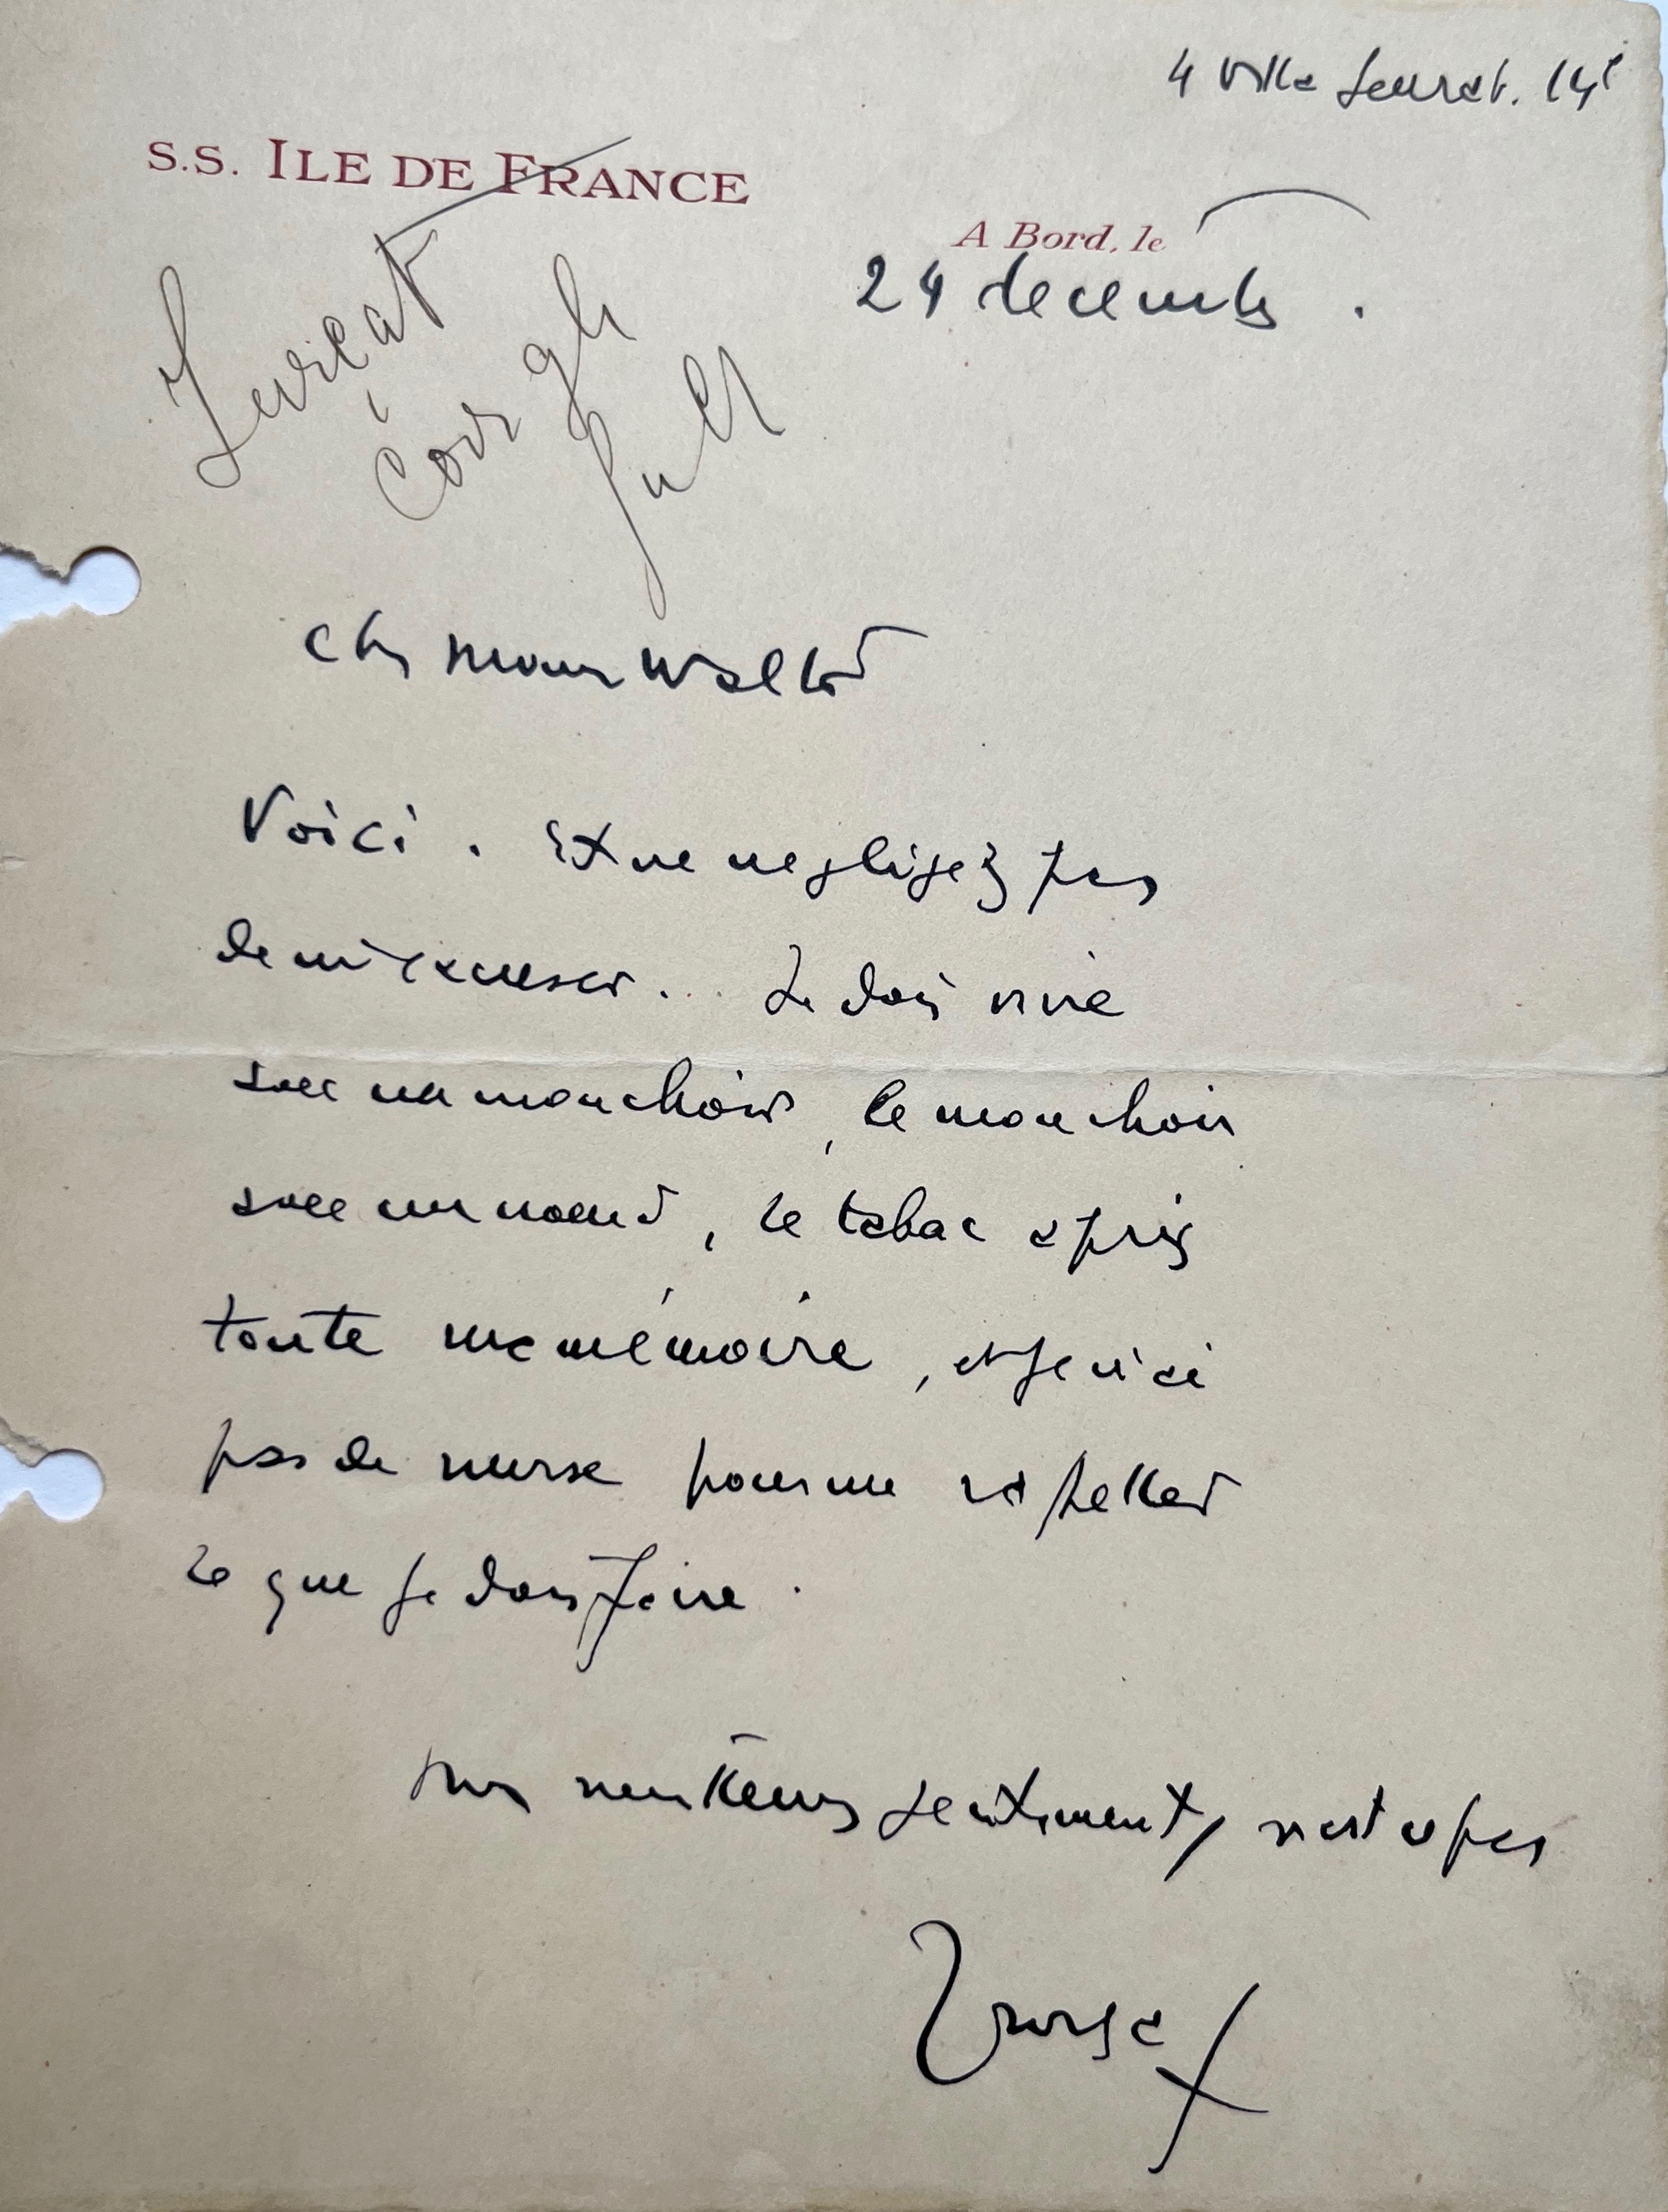 4 Villa Seurat. 14e
S.S. ILE DE FRANCE
A Bord, le
24 decembre.
Lurçat
Cher monsieur Walter
Voici. Et ne negligez pas
de m'excuser. Je dois vivre
avec un mouchoir, le mouchoir
avec un noeud, le tabac a pris
toute ma mémoire, et je n'ai
pas de nurse pour me rapeller
ce que je dois faire.
Mes meilleurs sentiments, n'est ce pas
Lurçat